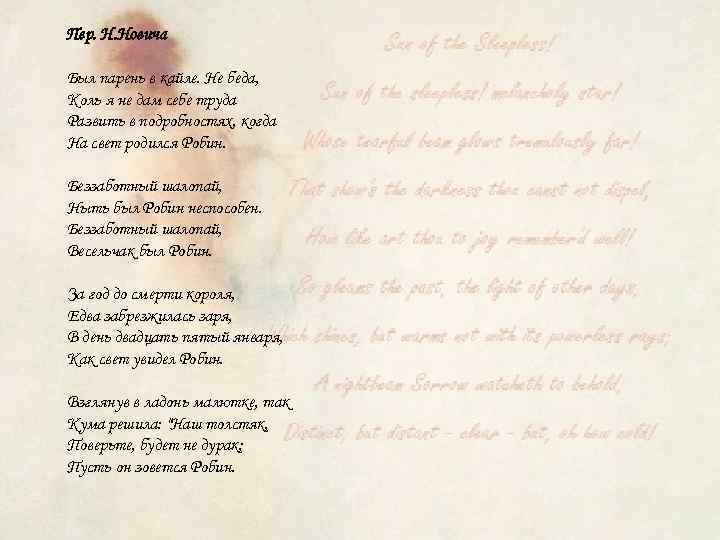 Пер. Н.Новича
Был парень в кайле. Не беда,
Коль я не дам себе труда
Развить в подробностях, когда
На свет родился Робин.
Беззаботный шалопай,
Ныть был Робин неспособен.
Беззаботный шалопай,
Весельчак был Робин.
За год до смерти короля,
Едва забрезжилась заря,
В день двадцать пятый января,
Как свет увидел Робин.
Взглянув в ладонь малютке, так
Кума решила: "Наш толстяк,
Поверьте, будет не дурак;
Пусть он зовется Робин.
Sun of the Sleepless!
Sun of the sleepless! melancholy star!
Whose tearful beam glows tremulously far!
That show's the darkness thou canst not dispel,
How like art thou to joy remember'd well!
So gleams the past, the light of other days,
Which shines, but warms not with its powerless rays;
A nightbeam Sorrow watcheth to behold,
Distinct, but distant - clear - but, oh how cold!